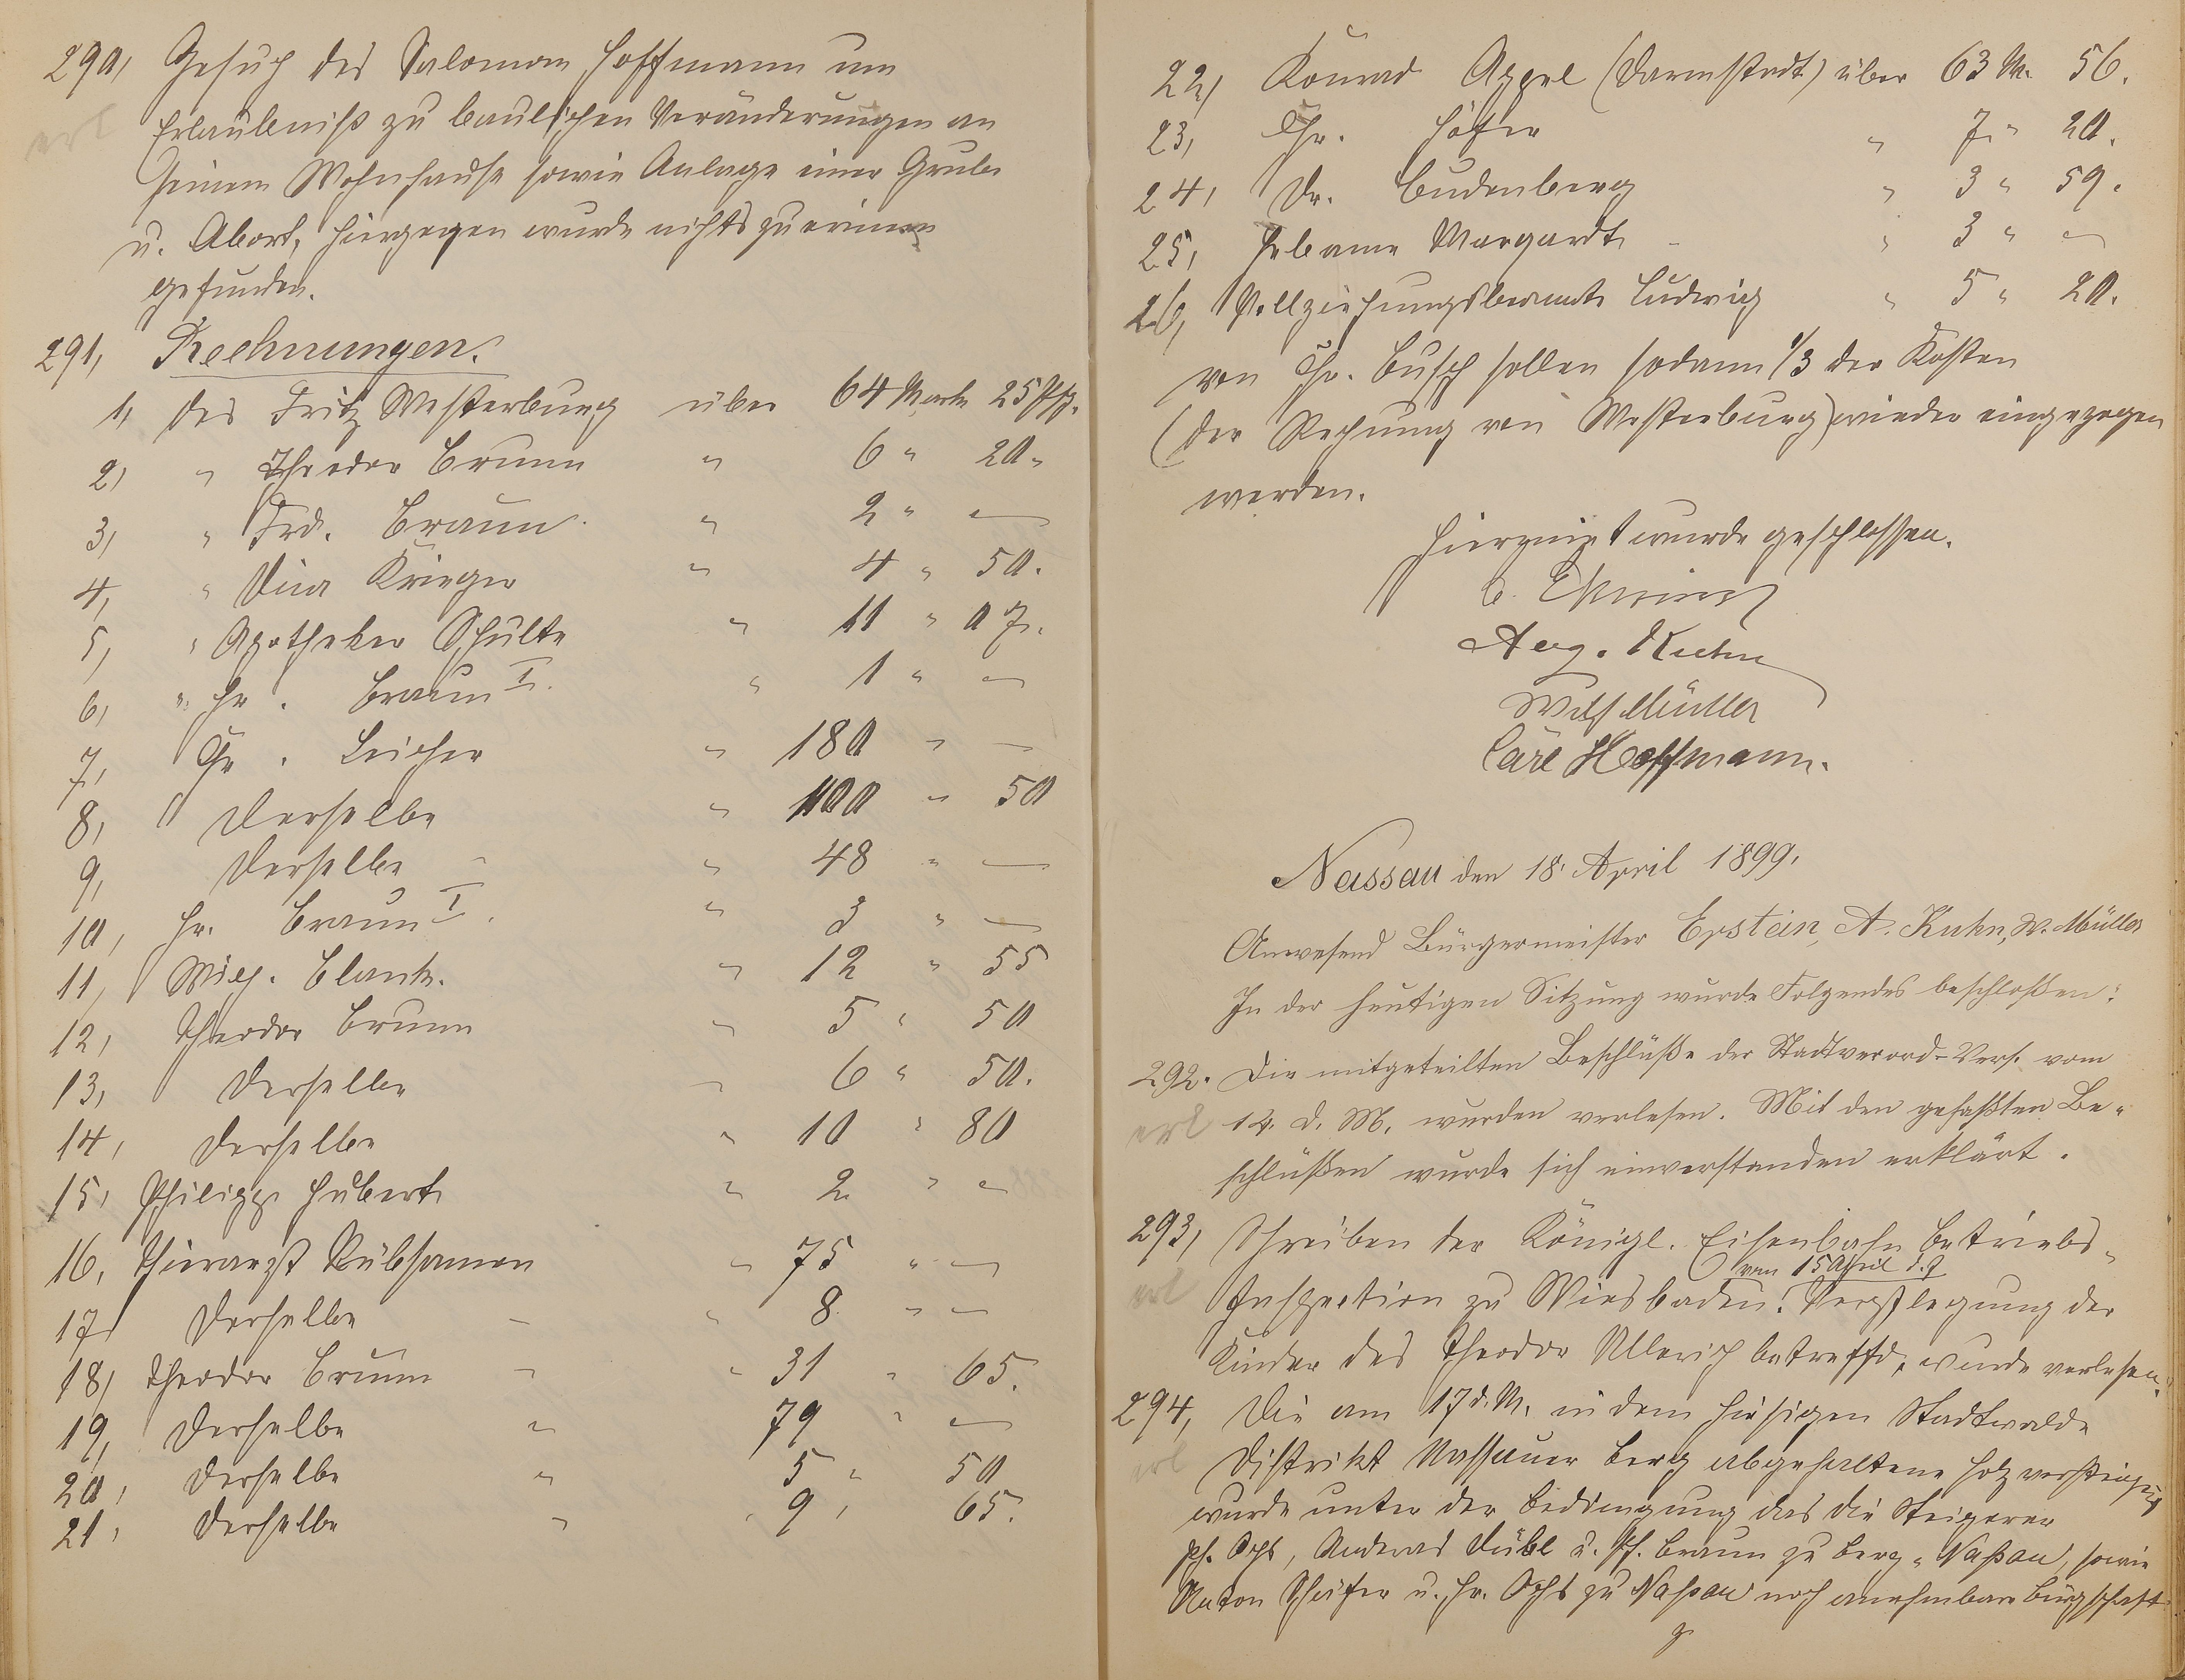 290, Gesuch des Salomon Hoffmann um
erl Erlaubniß zu baulichen Veränderungen an
seinem Wohnhause sowie Anlage einer Grube
u. Abort, hiergegen wurde nichts zu erinnern
gefunden.
291, Rechnungen.
1, des Fritz Westerburg über 64 Mark 25 Pfg.
2, " Theodor Brunn " 6 " 20 "
3, " Frd. Braun " 2 " —
4, " Dina Krieger " 4 " 50.
5, " Apotheker Schulte " 11 " 07.
6, " Hr. Braun I. " 1 " —
7, Chr. Leicher " 180 " —
8, Derselbe " 100 " 50
9, Derselbe " 48 " —
10, Hr. Braun I. " 3 " —
11, Wilh. Blank. " 12 " 55
12, Theodor Brunn " 5 " 50
13, Derselbe " 6 " 50.
14, Derselbe " 10 " 80
15, Philipp Hubert " 2 " —
16, Thierarzt Rübsamen " 75 " —
17, Derselbe " 8 " —
18, Theodor Brunn " 31 " 65.
19, Derselbe " 79 " —
20, Derselbe " 5 " 50
21, Derselbe " 9 " 65.
22, Konrad Appel (Darmstadt) über 63 M. 56.
23, Chr. Höfer " 7 " 20.
24, Dr. Budenberg " 3 " 59.
25, Hebame Margardt " 3 " —
26, Vollziehungsbeamte Ludwig " 5 " 20.
von Chr. Busch sollen sodann 1/3 der Kosten
(der Rechnung von Westerburg) wieder eingezogen
werden.
Hiermit wurde geschlossen.
Aug. Kuhn
Wilh Müller
Carl Hoffmann.
Nassau den 18. April 1899.
Anwesend Bürgermeister Epstein, A. Kuhn, W. Müller
In der heutigen Sitzung wurde Folgendes beschloßen:
292. Die mitgeteilten Beschlüße der Stadtverord-Vers. vom
erl 14. d. M. wurden verlesen. Mit den gefaßten Be-
schlüßen wurde sich einverstanden erklärt.
293, Schreiben der Königl. Eisenbahn Betriebs-
vom 15 April d. J
erl Inspection zu Wiesbaden, Verpflegung der
Kinder des Theodor Ullerich betreffd, wurde verlesen.
294, Die am 17 d. M. in dem hiesigen Stadtwalde
erl Distrikt Nassauer Berg abgehaltene Holzversteigerung
wurde unter der Bedingung das die Steigerer
Ph. Ochs, Andreas Dübel u. Ph. Braun zu Berg-Naßau, sowie
Anton Schäfer u. Hr. Ochs zu Naßau noch annehmbare Bürgschaft